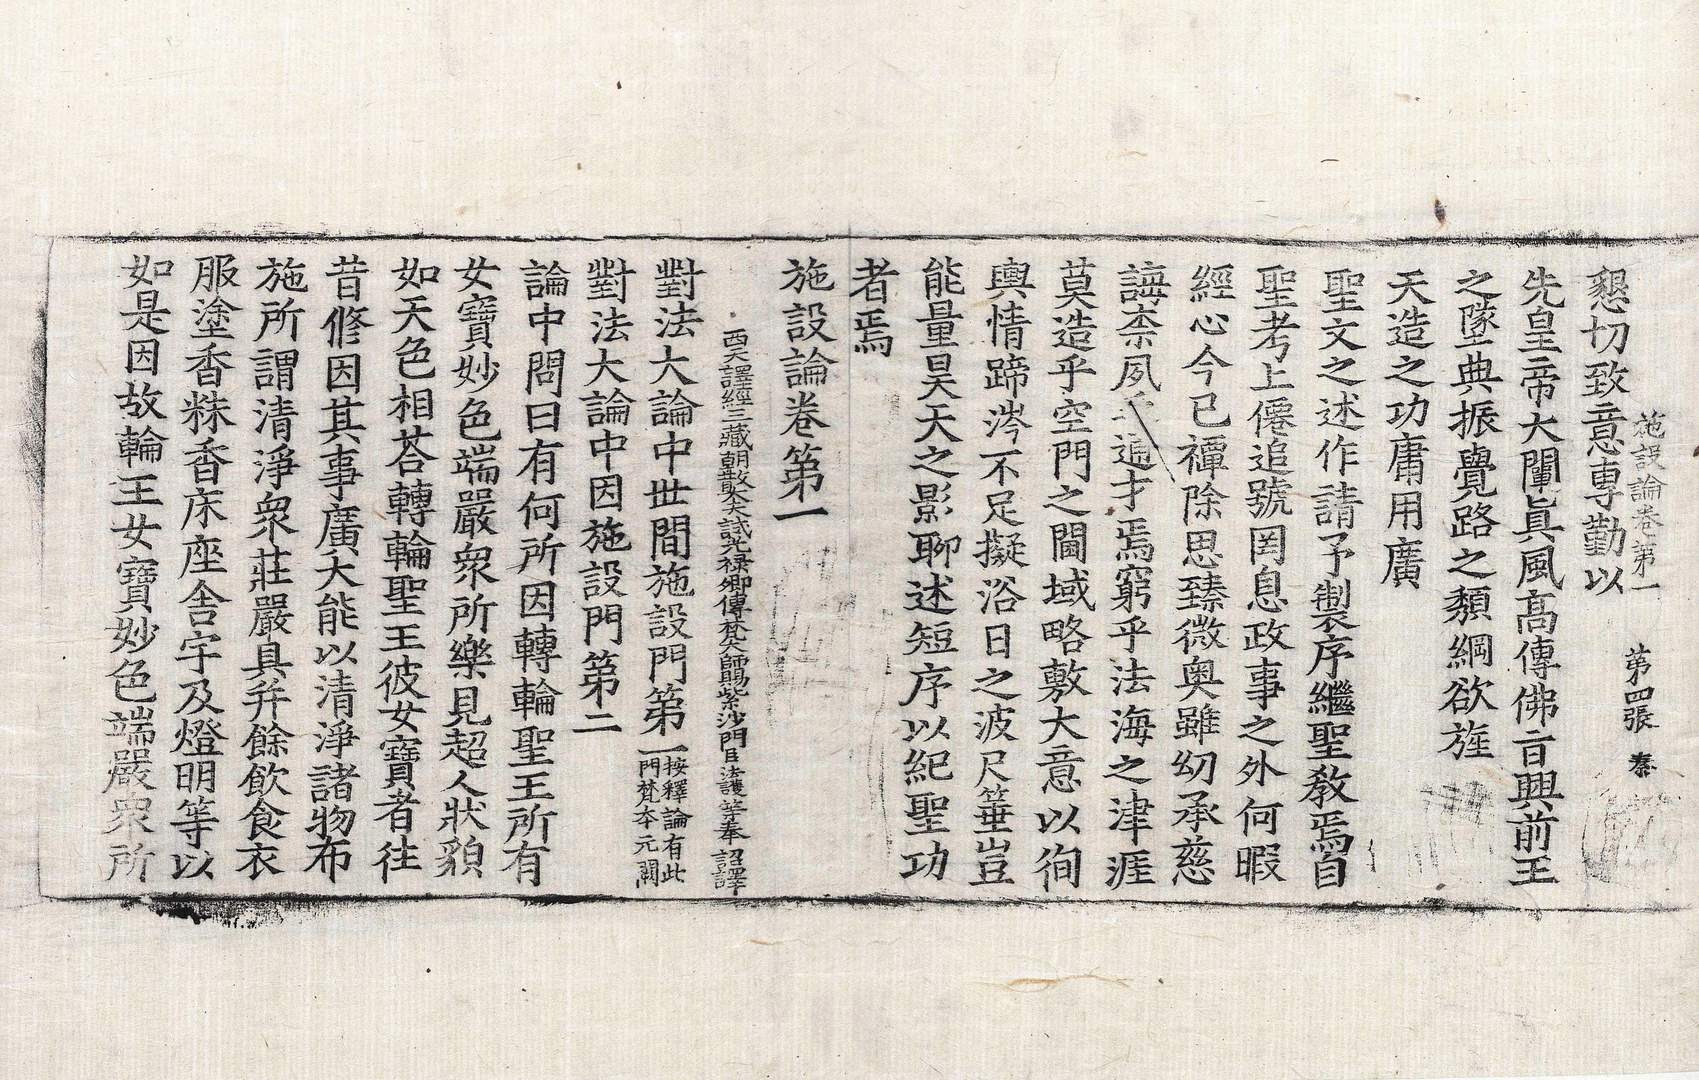 施設論卷第一　第四張　秦
懇切致意專勤以
先皇帝大闡眞風高傳佛旨興前王
之墜典振覺路之頽綱欲旌
天造之功庸用廣
聖文之述作請予製序繼聖教焉自
聖考上僊追號罔息政事之外何暇
經心今已禫除思臻微奥雖幼承慈
誨柰夙乖通才焉窮乎法海之津涯
莫造乎空門之閫域略敷大意以徇
輿情蹄涔不足擬浴日之波尺箠豈
能量昊天之影聊述短序以紀聖功
者焉
施設論卷第一
西天譯經三藏朝散大夫試光禄卿傳梵大師賜紫沙門臣法護等奉詔譯
對法大論中世間施設門第一按釋論有此門梵本元闕
對法大論中因施設門第二
論中問曰有何所因轉輪聖王所有
女寶妙色端嚴衆所樂見超人狀貌
如天色相荅轉輪聖王彼女寶者往
昔修因其事廣大能以清淨諸物布
施所謂清淨衆莊嚴具并餘飲食衣
服塗香粖香床座舍宇及燈明等以
如是因故輪王女寶妙色端嚴衆所